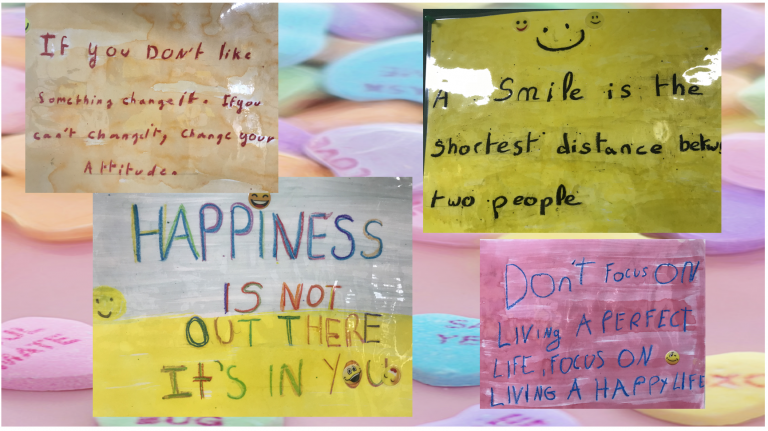 If you DON't like
Something change it. If you
can't change it, change your
Attitude.
A Smile is the
shortest distance betw
two people
HAPPINESS
IS NOT
OUT THERE
It'S IN YOU
DON'T FOCUS ON
LIVINg A PERFECT
LIFE, FOCUS ON
LIVING A HAPPY LIFE
MATE
LOVE
YE
XO
BUG